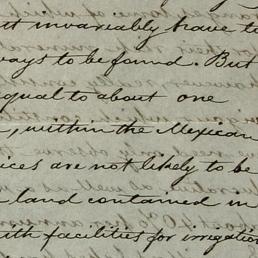 invariably have to
ways to be found. But
equal to about one
, within the Mexican
ices are not likely to be
land contained in
ith facilities for irrigation